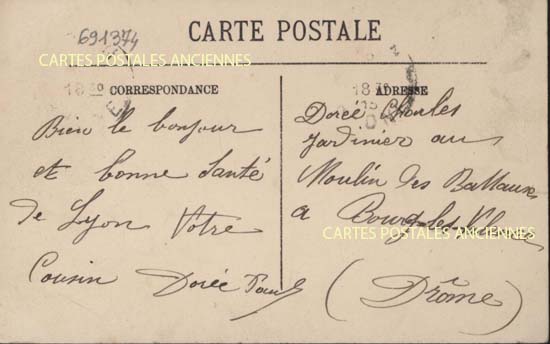 691374
CARTE POSTALE
CARTES POSTALES ANCIENNES
CORRESPONDANCE
Bien le bonjour
et bonne santé
de Lyon Votre
Cousin Dorée Paul
18 30
ADRESSE
Dorée Charles
Jardinier au
Moulin des
a Bourg-les-Valence
CARTES POSTALES ANCIENNES
(Drôme)